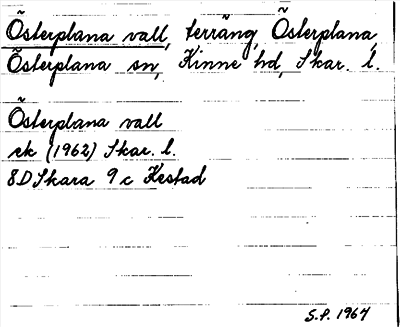 Österplana vall, terräng, Österplana,
Österplana sn, Kinne hd, Skar. l.
Österplana vall
ek (1962) Skar. l.
8D Skara 9 c Kestad
S.P. 1967